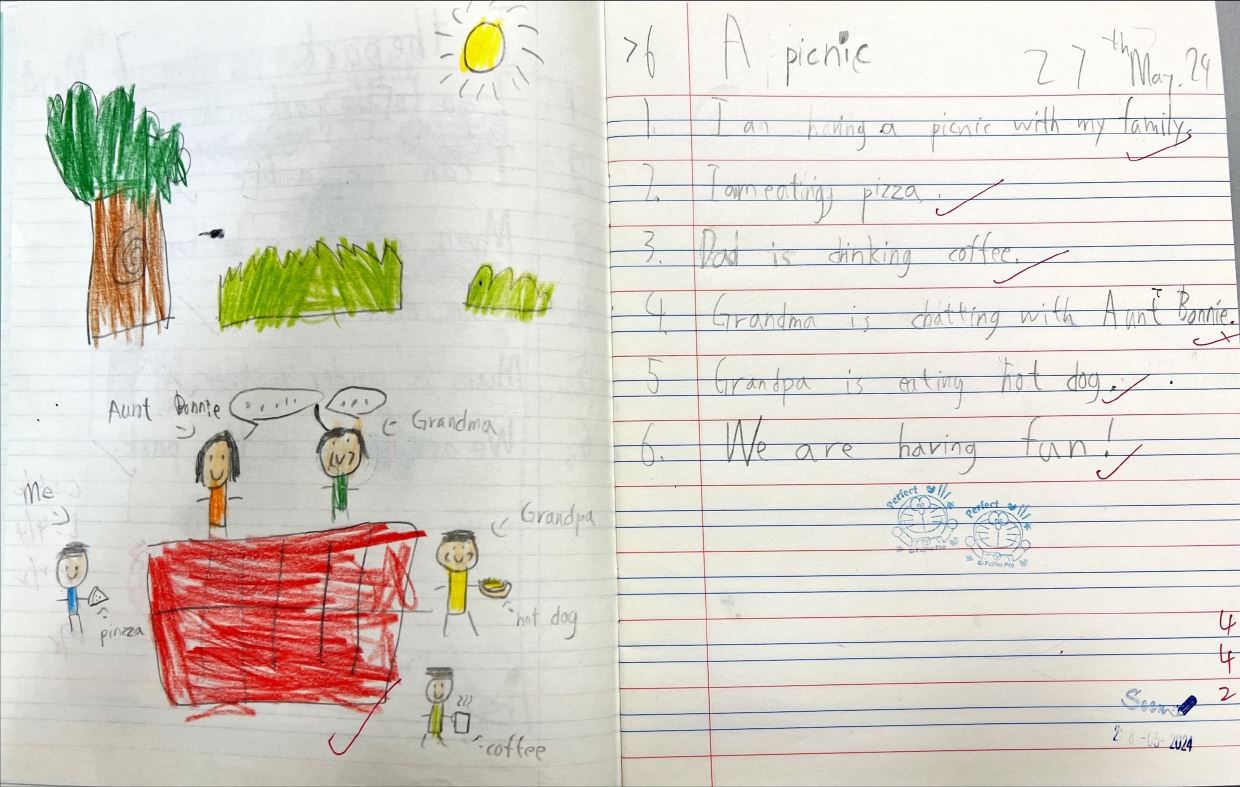 Aunt Bonnie
Grandma
Me
Grandpa
pinzza
hot dog
coffee
>6 A picnic 27th May. 24
1. I am having a picnic with my family.
2. I am eatingy pizza.
3. Dad is drinking coffee.
4. Grandma is chatting with Aunt Bonnie.
5 Grandpa is eating hot dog.
6. We are having fun!
Perfect Perfect
© Fujiko Pro © Fujiko Pro
4
4
2
-05-2024